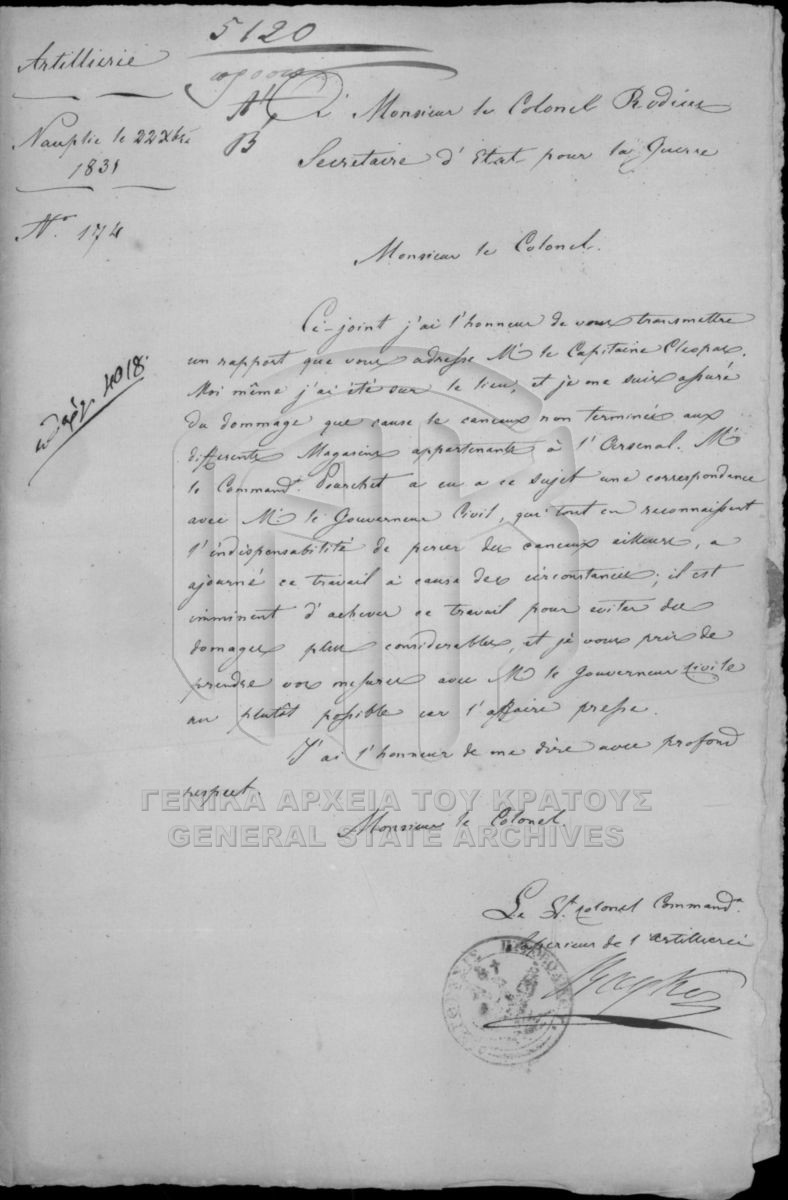 5120
Artillierie
A
B
A Monsieur le Colonel Rodius
Nauplie le 22 Xbre
1831
Secretaire d'Etat pour la Guerre
No 174
Monsieur le Colonel.
Ci-joint j'ai l'honneur de vous transmettre
un rapport que vous adresse Mr le Capitaine Cleopas.
4018.
Moi même j'ai été sur le lieu, et je me suis assuré
du dommage que cause le caneaux non terminés aux
differents Magasins appartenants à l'Arsenal. Mr
le Commandt. Pourchet a eu a ce sujet une correspondence
avec Mr le Gouverneur Civil, qui tout en reconnaissent
l'indispensabilité de percer des caneaux ailleurs, a
ajourné ce travail à cause des circonstances; il est
imminent d'achever ce travail pour eviter des
domages plus considerables, et je vous pris de
prendre vos mesures avec Mr le Gouverneur Civile
au plutôt possible car l'affaire presse.
J'ai l'honneur de me dire avec profond
respect.
ΓΕΝΙΚΑ ΑΡΧΕΙΑ ΤΟΥ ΚΡΑΤΟΥΣ
GENERAL STATE ARCHIVES
Monsieur le Colonel.
Le Lt. Colonel Command.
Superieur de l'Artillierie